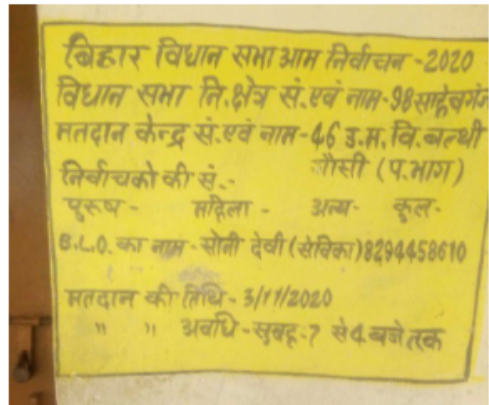 बिहार विधान सभा आम निर्वाचन -2020
विधान सभा नि.क्षेत्र सं.एवं नाम-98 साहेबगंज
मतदान केन्द्र सं.एवं नाम-46 उ.म.वि.बल्थी
(प.भाग)
निर्वाचको की सं.-
पुरूष- महिला- अन्य- कुल-
B.L.O. का नाम - सोनी देवी (सेविका) 8294458610
मतदान की तिथि - 3/11/2020
" " अवधि - सुबह-7 से 4 बजे तक